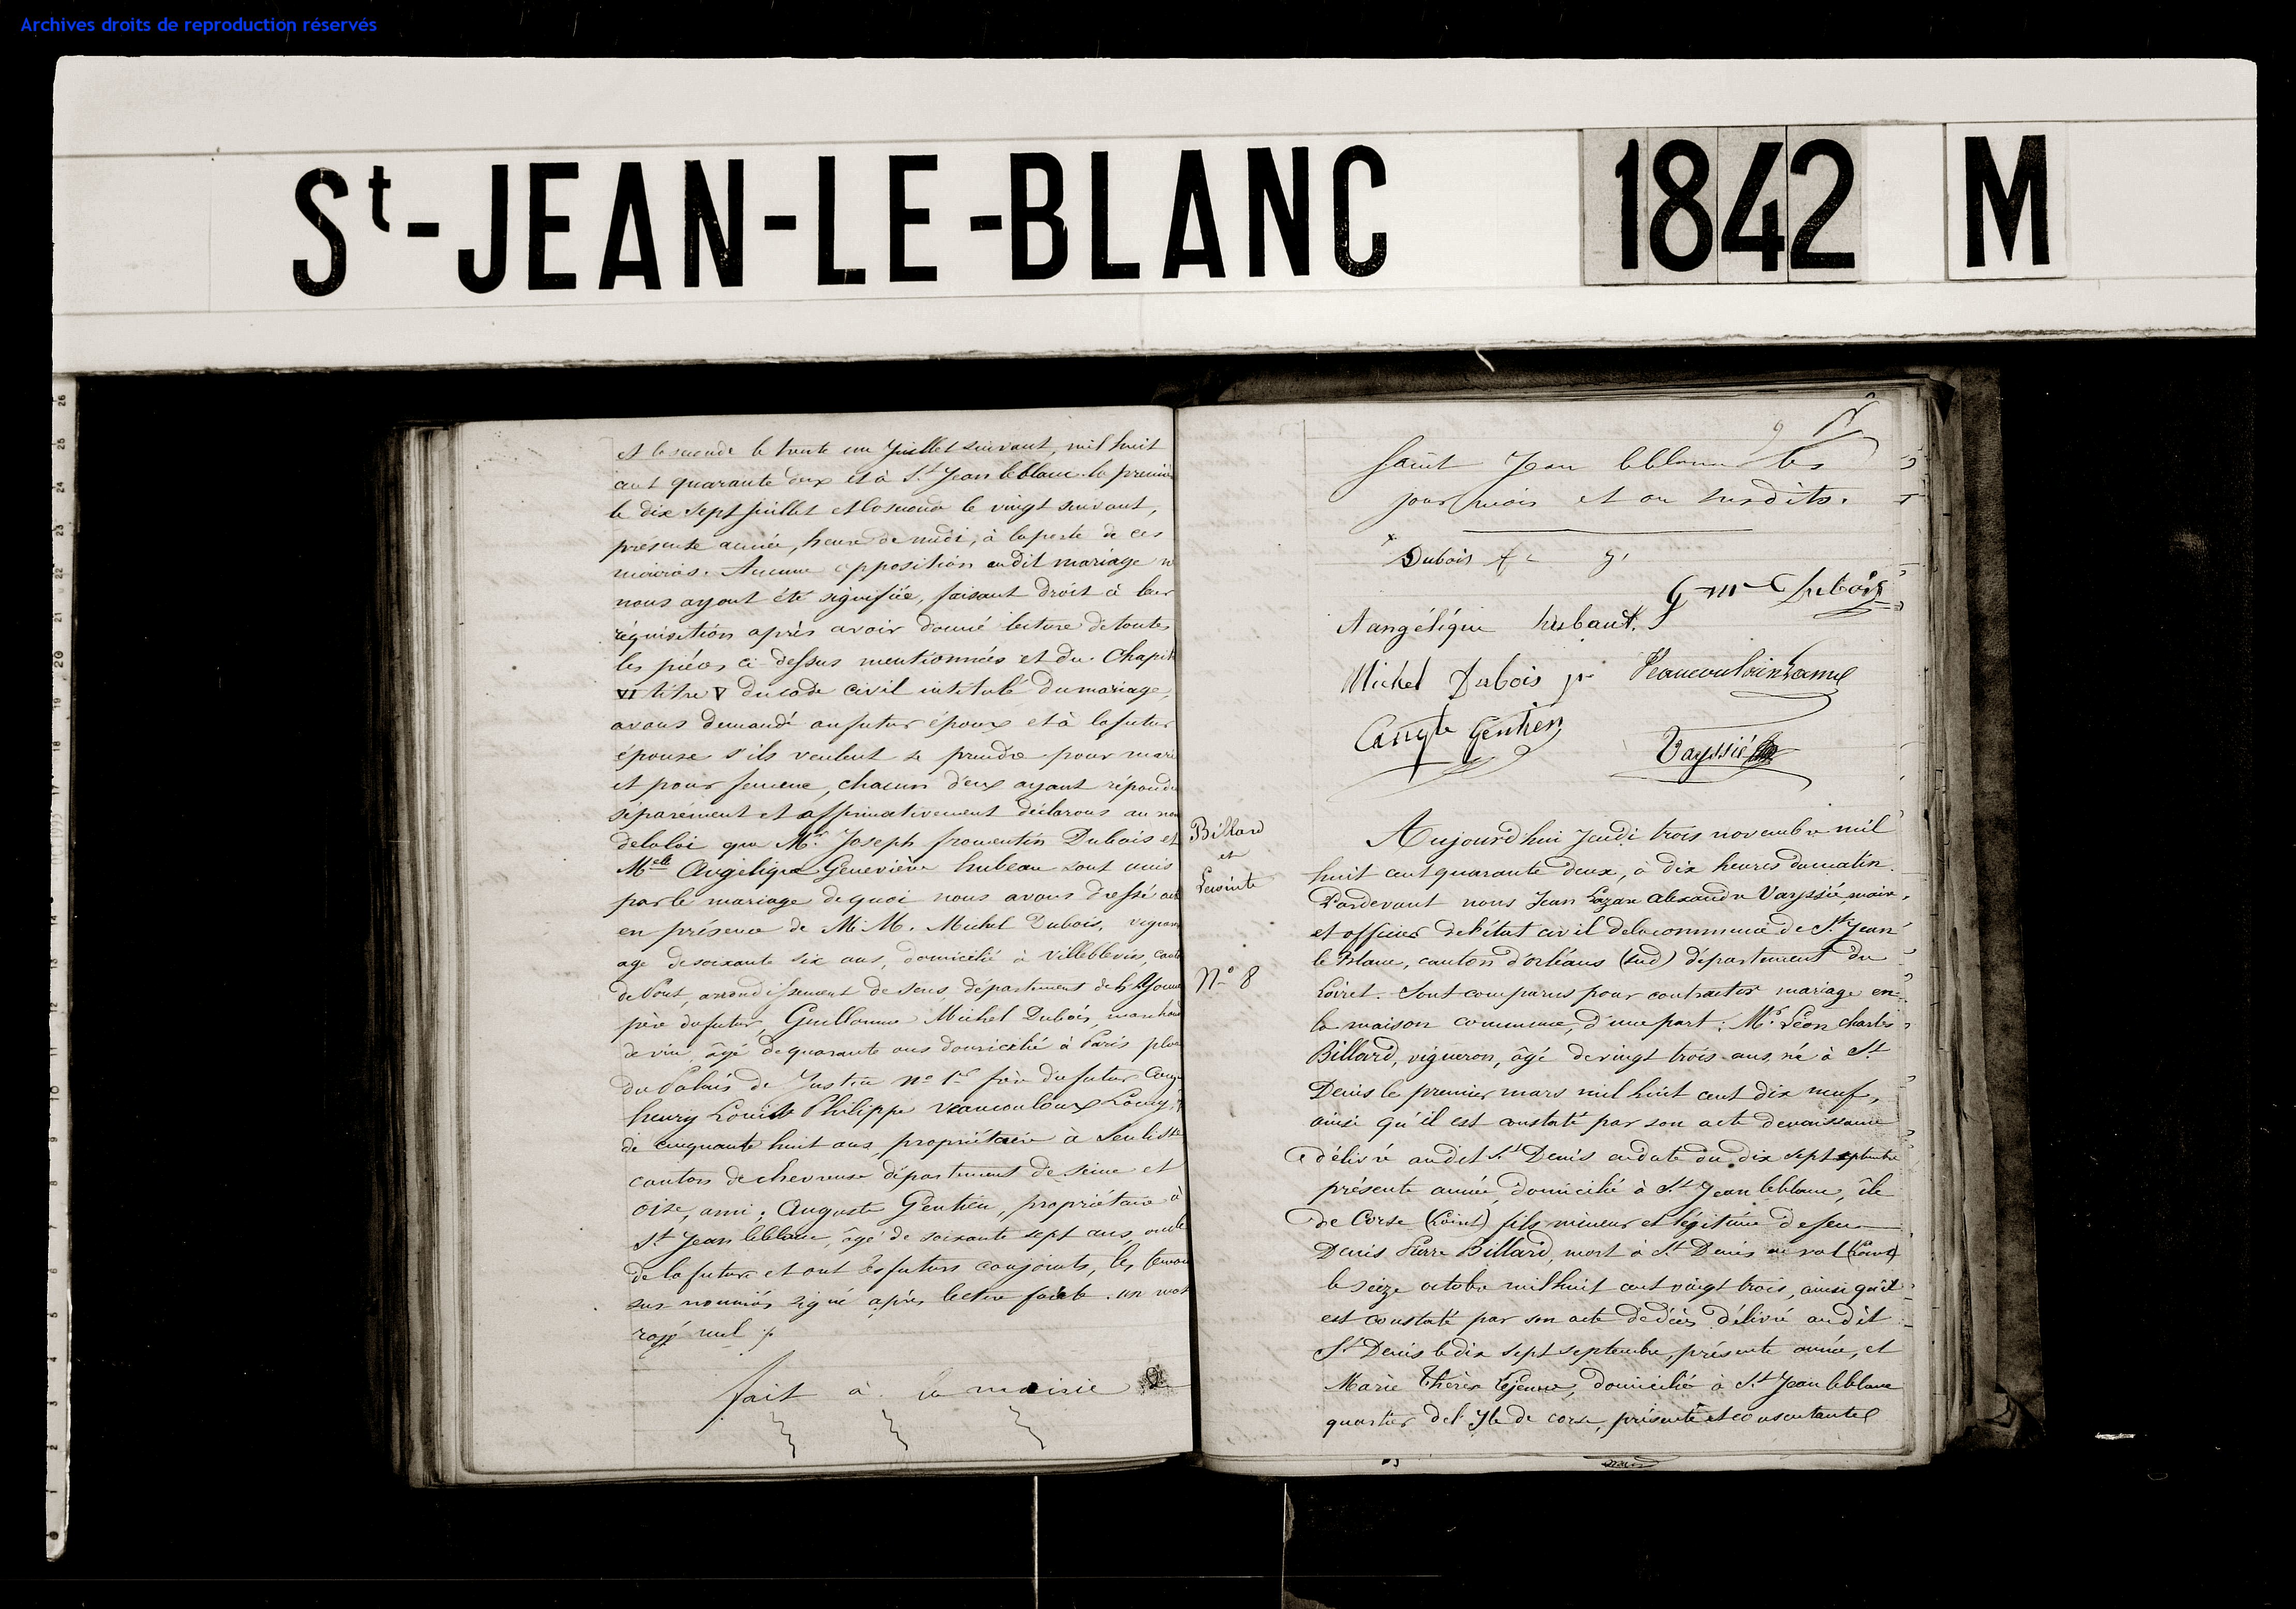 Archives droits de reproduction réservés
St-JEAN-LE-BLANC 1842 M
et la seconde le trente un Juillet suivant, mil huit
cent quarante deux et à St Jean leblanc le premier
le dix sept juillet et la seconde le vingt suivant,
présente année, heure de midi, à la porte de ces
mairies. Aucune opposition audit mariage ne
nous ayant été signifiée, faisant droit à leur
réquisition après avoir donné lecture de toutes
les pièces ci dessus mentionnées et du Chapitre
VI titre V du code civil intitulé du mariage,
avons demandé au futur époux et à la future
épouse s'ils veulent se prendre pour mari
et pour femme, chacun d'eux ayant répondu
séparément et affirmativement déclarons au nom
de la loi que Mr Joseph fromentin Dubois et
Melle Angélique Geneviève hubeau sont unis
par le mariage de quoi nous avons dressé acte
en présence de M.M. Michel Dubois, vigneron
age de soixante six ans, domicilié à Villeblevin, canton
de Pont, arrondissement de Sens, département de l'Yonne
père du futur, Guillaume Michel Dubois, marchand
de vin, âgé de quarante ans domicilié à Paris place
du Palais de Justice no 1er frère du futur
henry Louis Philippe
de cinquante huit ans, propriétaire à Senlisse
canton de chevreuse département de Seine et
oise, ami; Auguste Gentien, propriétaire à
St Jean leblanc, âgé de soixante sept ans, oncle
de la future et ont les futurs conjoints, les témoins
sus nommés signé après lecture faite. un mot
rayé nul
fait à la mairie de
Saint Jean leblanc les
jour mois et an susdits.
Dubois
G m Dubois
A angélique hubaut.
Michel Dubois
Augte Gentien
Vayssié
Billard
et
Lecointe
No 8
Aujourd'hui Jeudi trois novembre mil
huit cent quarante deux, à dix heures du matin.
Pardevant nous Jean Lazare Alexandre Vayssié, maire,
et officier de l'état civil de la commune de St Jean
le Blanc, canton d'orléans (sud) département du
Loiret. Sont comparus pour contracter mariage en
la maison commune, d'une part: Mr Léon Charles
Billard, vigneron, âgé de vingt trois ans, né à St
Denis le premier mars mil huit cent dix neuf,
ainsi qu'il est constaté par son acte de naissance
délivré audit St Denis en date du dix sept septembre
présente année, domicilié à St Jean leblanc, île
de Corse (Loiret) fils mineur et légitime de feu
Denis Pierre Billard, mort à St Denis en val (Loiret)
le seize octobre mil huit cent vingt trois, ainsi qu'il
est constaté par son acte de décès délivré audit
St Denis le dix sept septembre, présente année, et
Marie Thérèse Lejeune, domiciliée à St Jean leblanc
quartier de l'Ile de corse, présente et consentante